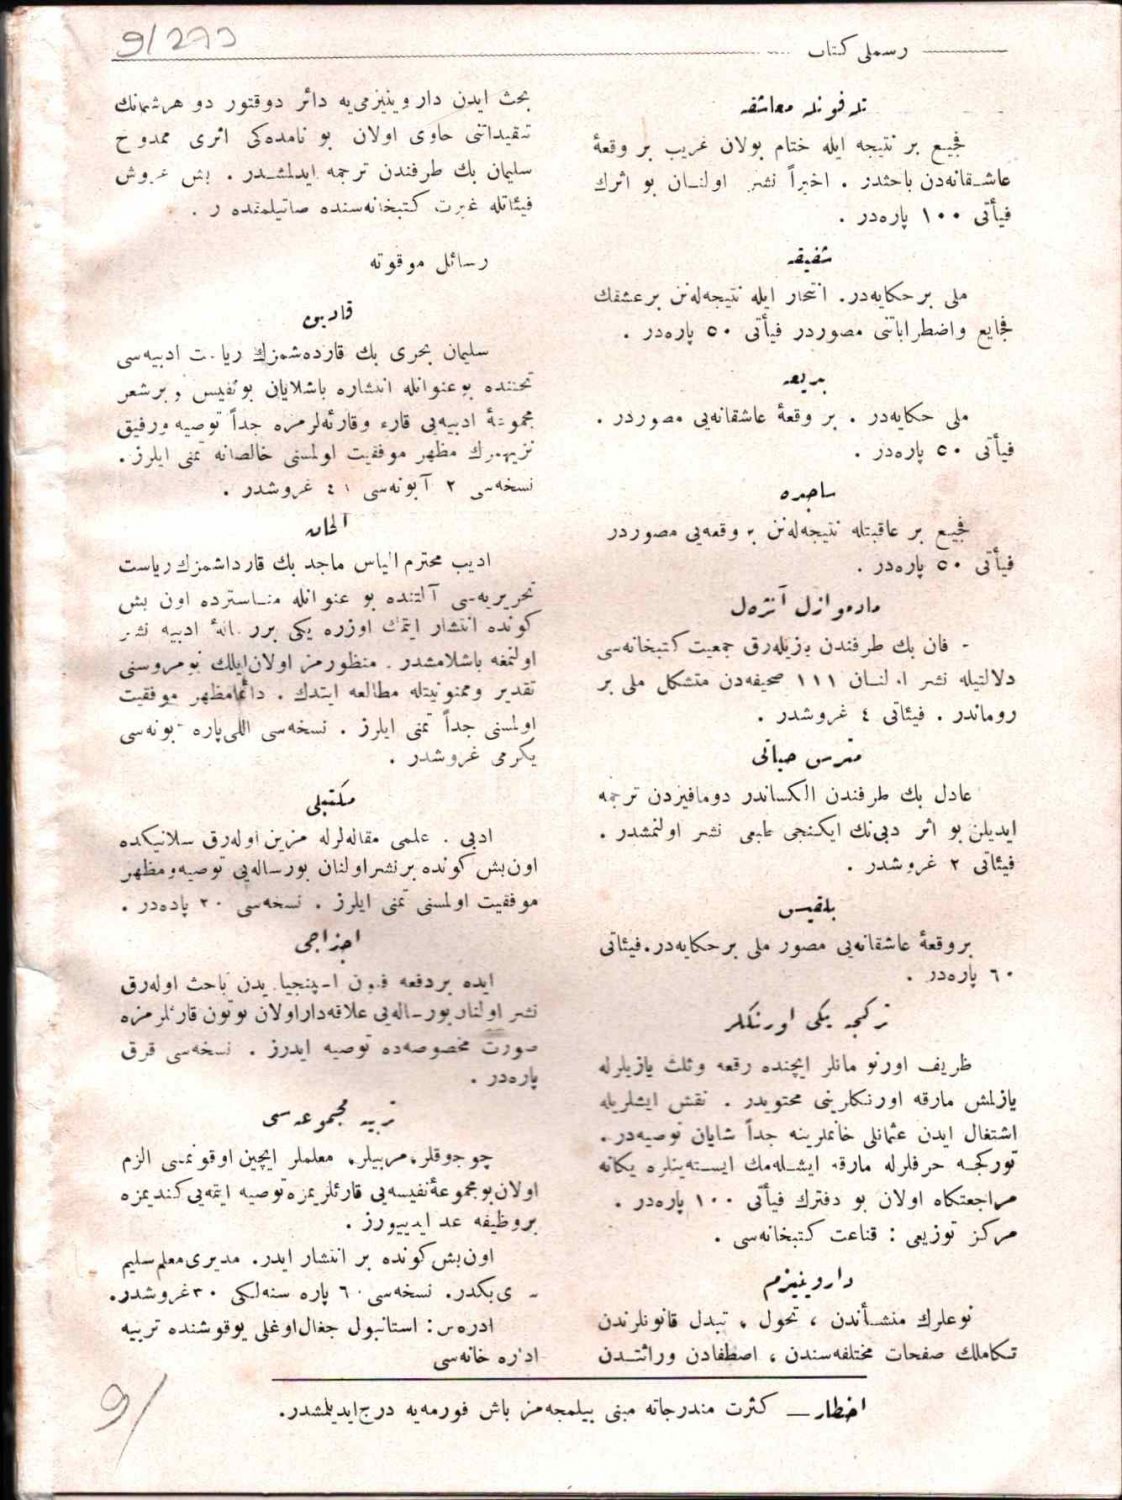 رسملی کتاب
9/293
تله فونله معاشقه
فجیع بر نتیجه ایله ختام بولان غریب بر وقعهٔ
عاشقانه‌دن باحثدر . اخیراً نشر اولنان بو اثرك
فیأتی ١٠٠ پاره‌در .
شفیقه
ملی بر حکایه‌در. انتحار ایله نتیجه‌لنن بر عشقك
فجایع واضطراباتنی مصوردر فیأتی ٥٠ پاره‌در .
بدیعه
ملی حکایه‌در . بر وقعهٔ عاشقانه‌یی مصوردر .
فیأتی ٥٠ پاره‌در .
ساجده
فجیع بر عاقبتله نتیجه‌لنن بر وقعه‌یی مصوردر
فیأتی ٥٠ پاره‌در .
مادموازل آنژه‌ل
فان بك طرفندن یازیله‌رق جمعیت کتبخانه‌سی
دلالتیله نشر اولنان ١١١ صحیفه‌دن متشکل ملی بر
روماندر . فیئاتی ٤ غروشدر .
متدرس حیاتی
عادل بك طرفندن الکساندر دومافیزدن ترجمه
ایدیلن بو اثر دبی‌نك ایکنجی طبعی نشر اولنمشدر .
فیئاتی ٢ غروشدر .
بلقیس
بر وقعهٔ عاشقانه‌یی مصور ملی بر حکایه‌در.فیئاتی
٦٠ پاره‌در .
ترکجه یکی اورنکلر
ظریف اورنو مانلر ایچنده رقعه وثلث یازیلرله
یازلمش مارقه اورنکلرینی محتویدر . نقش ایشلریله
اشتغال ایدن عثمانلی خانملرینه جداً شایان توصیه‌در.
تورکجه حرفلرله مارقه ایشله‌مك ایسته‌ینلره یکانه
مراجعتکاه اولان بو دفترك فیأتی ١٠٠ پاره‌در .
مرکز توزیعی : قناعت کتبخانه‌سی .
داروینیزم
نوعلرك منشأندن ، تحول ، تبدل قانونلرندن
تکاملك صفحات مختلفه‌سندن ، اصطفادن وراثتدن
بحث ایدن داروینیزمی‌یه دائر دوقتور دو هرشمانك
تنقیداتنی حاوی اولان بو نامده‌کی اثری ممدوح
سلیمان بك طرفندن ترجمه ایدلمشدر . بش غروش
فیئاتله غیرت کتبخانه‌سنده صاتیلمقده‌در .
رسائل موقوته
قادین
سلیمان بحری بك قارده‌شمزك ریاست ادبیه‌سی
تحتنده بو عنوانله انتشاره باشلایان بو نفیس و پرشعر
مجموعهٔ ادبیه‌یی قارء وقارئه‌لرمزه جداً توصیه ورفیق
نزیهمزك مظهر موفقیت اولمسنی خالصانه تمنی ایلرز.
نسخه‌سی ٢ آبونه‌سی ٤٠ غروشدر .
الحان
ادیب محترم الیاس ماجد بك قارداشمزك ریاست
تحریریه‌سی آلتنده بو عنوانله مناسترده اون بش
کونده انتشار ایتمك اوزره یکی بر رسالهٔ ادبیه نشر
اولنمغه باشلامشدر . منظورمز اولان ایلك نومروسنی
تقدیر وممنونیتله مطالعه ایتدك . دائما مظهر موفقیت
اولمسنی جداً تمنی ایلرز . نسخه‌سی اللی پاره آبونه‌سی
یکرمی غروشدر .
مکتبلی
ادبی . علمی مقاله‌لرله مزین اوله‌رق سلانیکده
اون‌بش کونده بر نشر اولنان بو رساله‌یی توصیه ومظهر
موفقیت اولمسنی تمنی ایلرز . نسخه‌سی ٢٠ پاده‌در .
اجزاجی
آیده بر دفعه فنون اسپنجیاریدن باحث اوله‌رق
نشر اولنان بو رساله‌یی علاقه‌دار اولان بوتون قارئلرمزه
صورت مخصوصه‌ده توصیه ایدرز . نسخه‌سی قرق
پاره‌در .
تربیه مجموعه‌سی
چوجوقلر، مربیلر، معلملر ایچین اوقونمسی الزم
اولان بو مجموعهٔ نفیسه‌یی قارئلریمزه توصیه ایتمه‌یی کندیمزه
بر وظیفه عد ایدییورز .
اون‌بش کونده بر انتشار ایدر. مدیری معلم سلیم
سری بکدر. نسخه‌سی ٦٠ پاره سنه‌لکی ٣٠ غروشدر.
ادره‌س: استانبول جغال اوغلی یوقوشنده تربیه
اداره خانه‌سی
اخطار — کثرت مندرجاته مبنی بیلمجه‌مز باش فورمه‌یه درج ایدیلمشدر.
9/